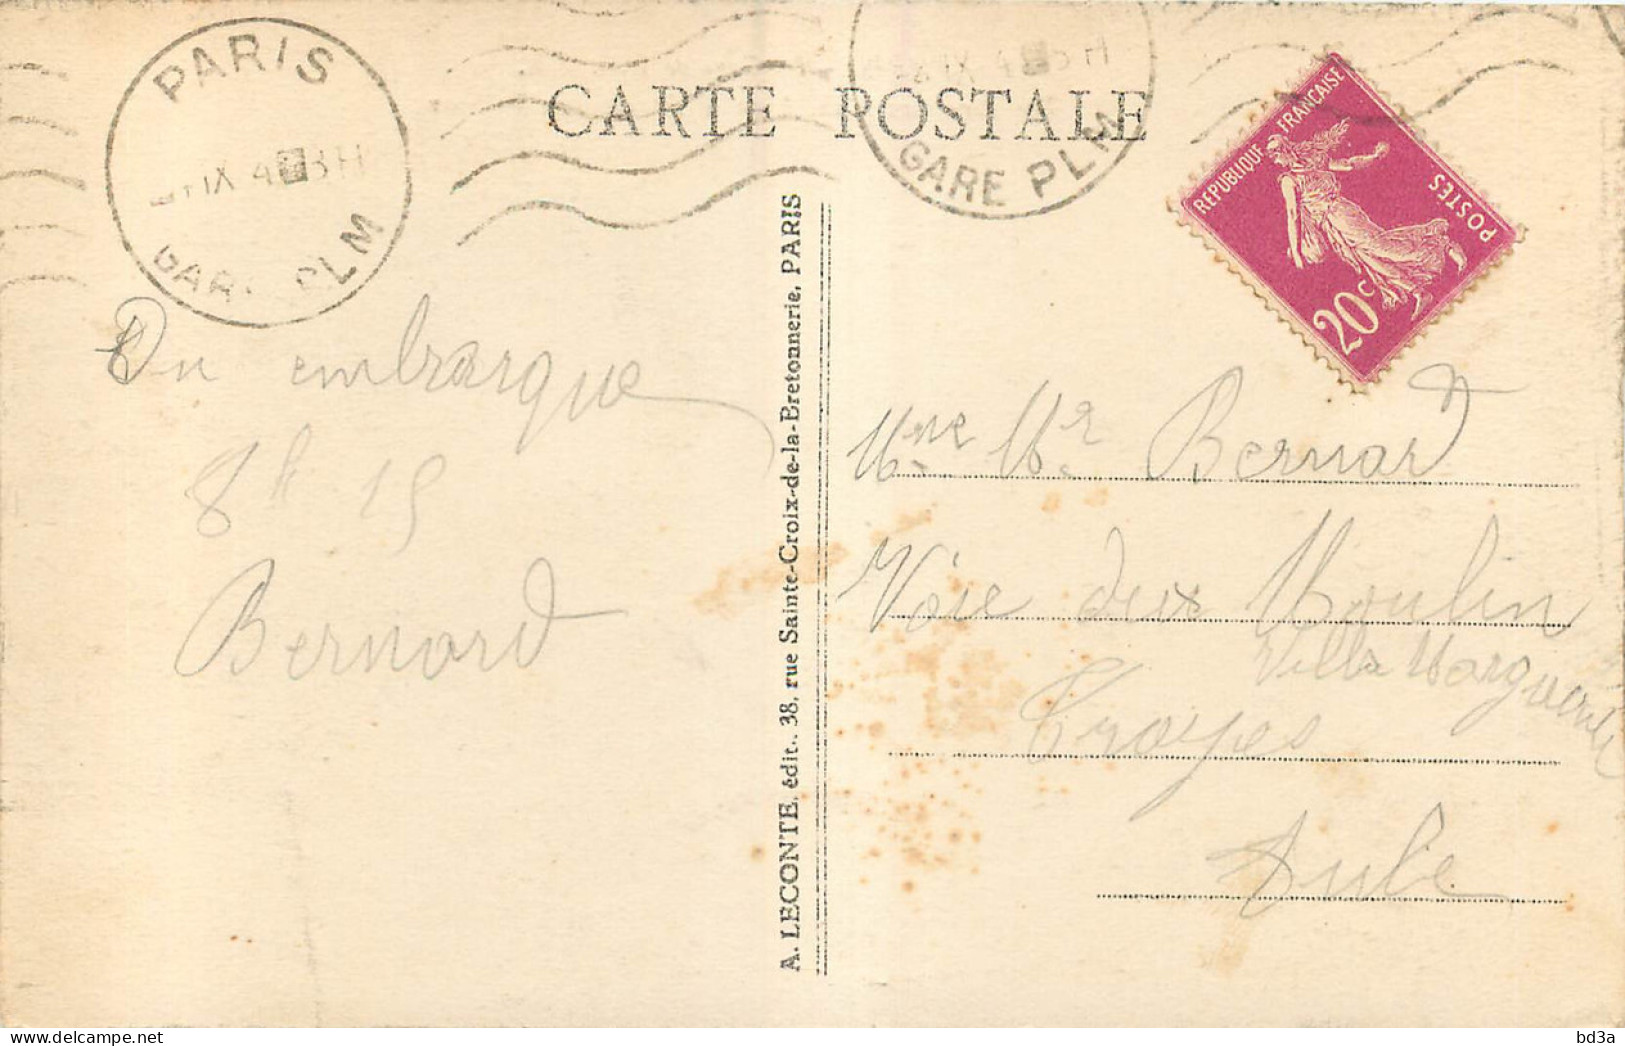 PARIS
GARE PLM
GARE PLM
CARTE POSTALE
REPUBLIQUE FRANÇAISE
POSTES
20c
On embarque
8h 15
Bernard
A. LECONTE, édit., 38, rue Sainte-Croix-de-la-Bretonnerie, PARIS
Mme Mr Bernard
Voie deux Moulin
Villa Marguerite
Troyes
Aube
bd3a